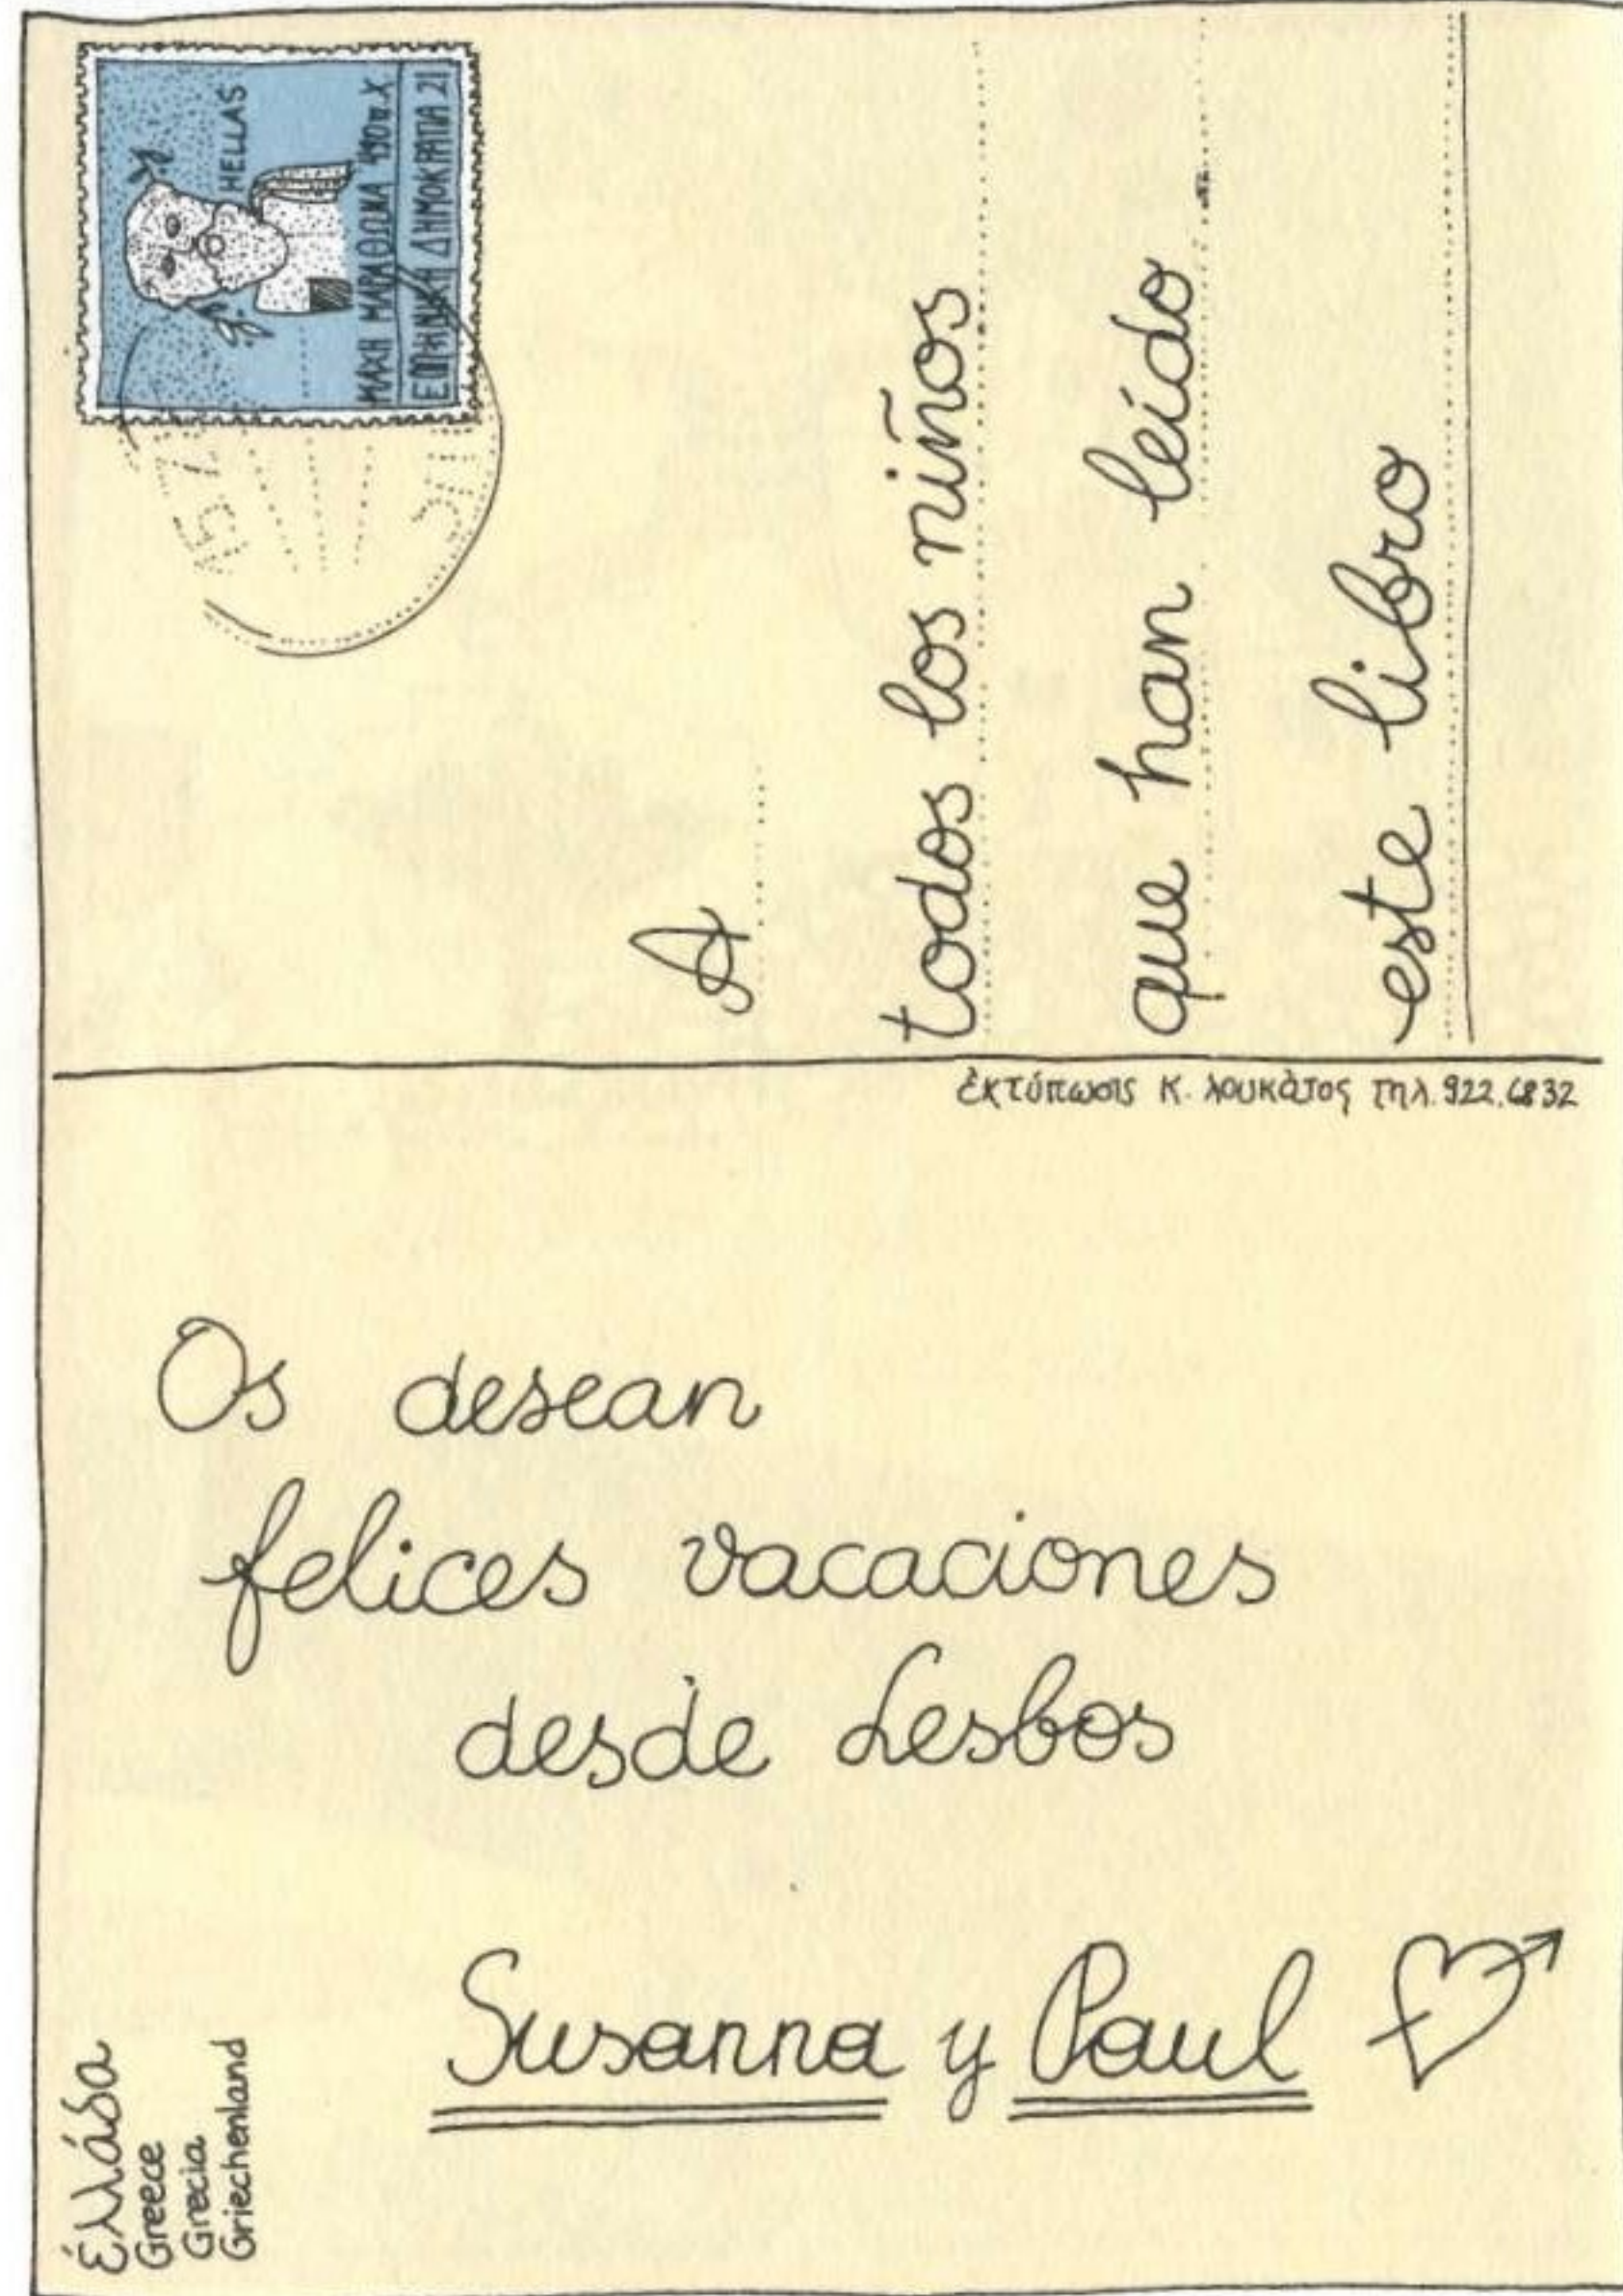 HELLAS
ΜΑΧΗ ΜΑΡΑΘΩΝΑ 490 π.Χ
ΔΗΜΟΚΡΑΤΙΑ 21
A
todos los niños
que han leído
este libro
ἐκτύπωσις Κ. λουκᾶτος τηλ. 922.6832
Os desean
felices vacaciones
desde Lesbos
Susanna y Paul
Ἑλλάδα
Greece
Grecia
Griechenland